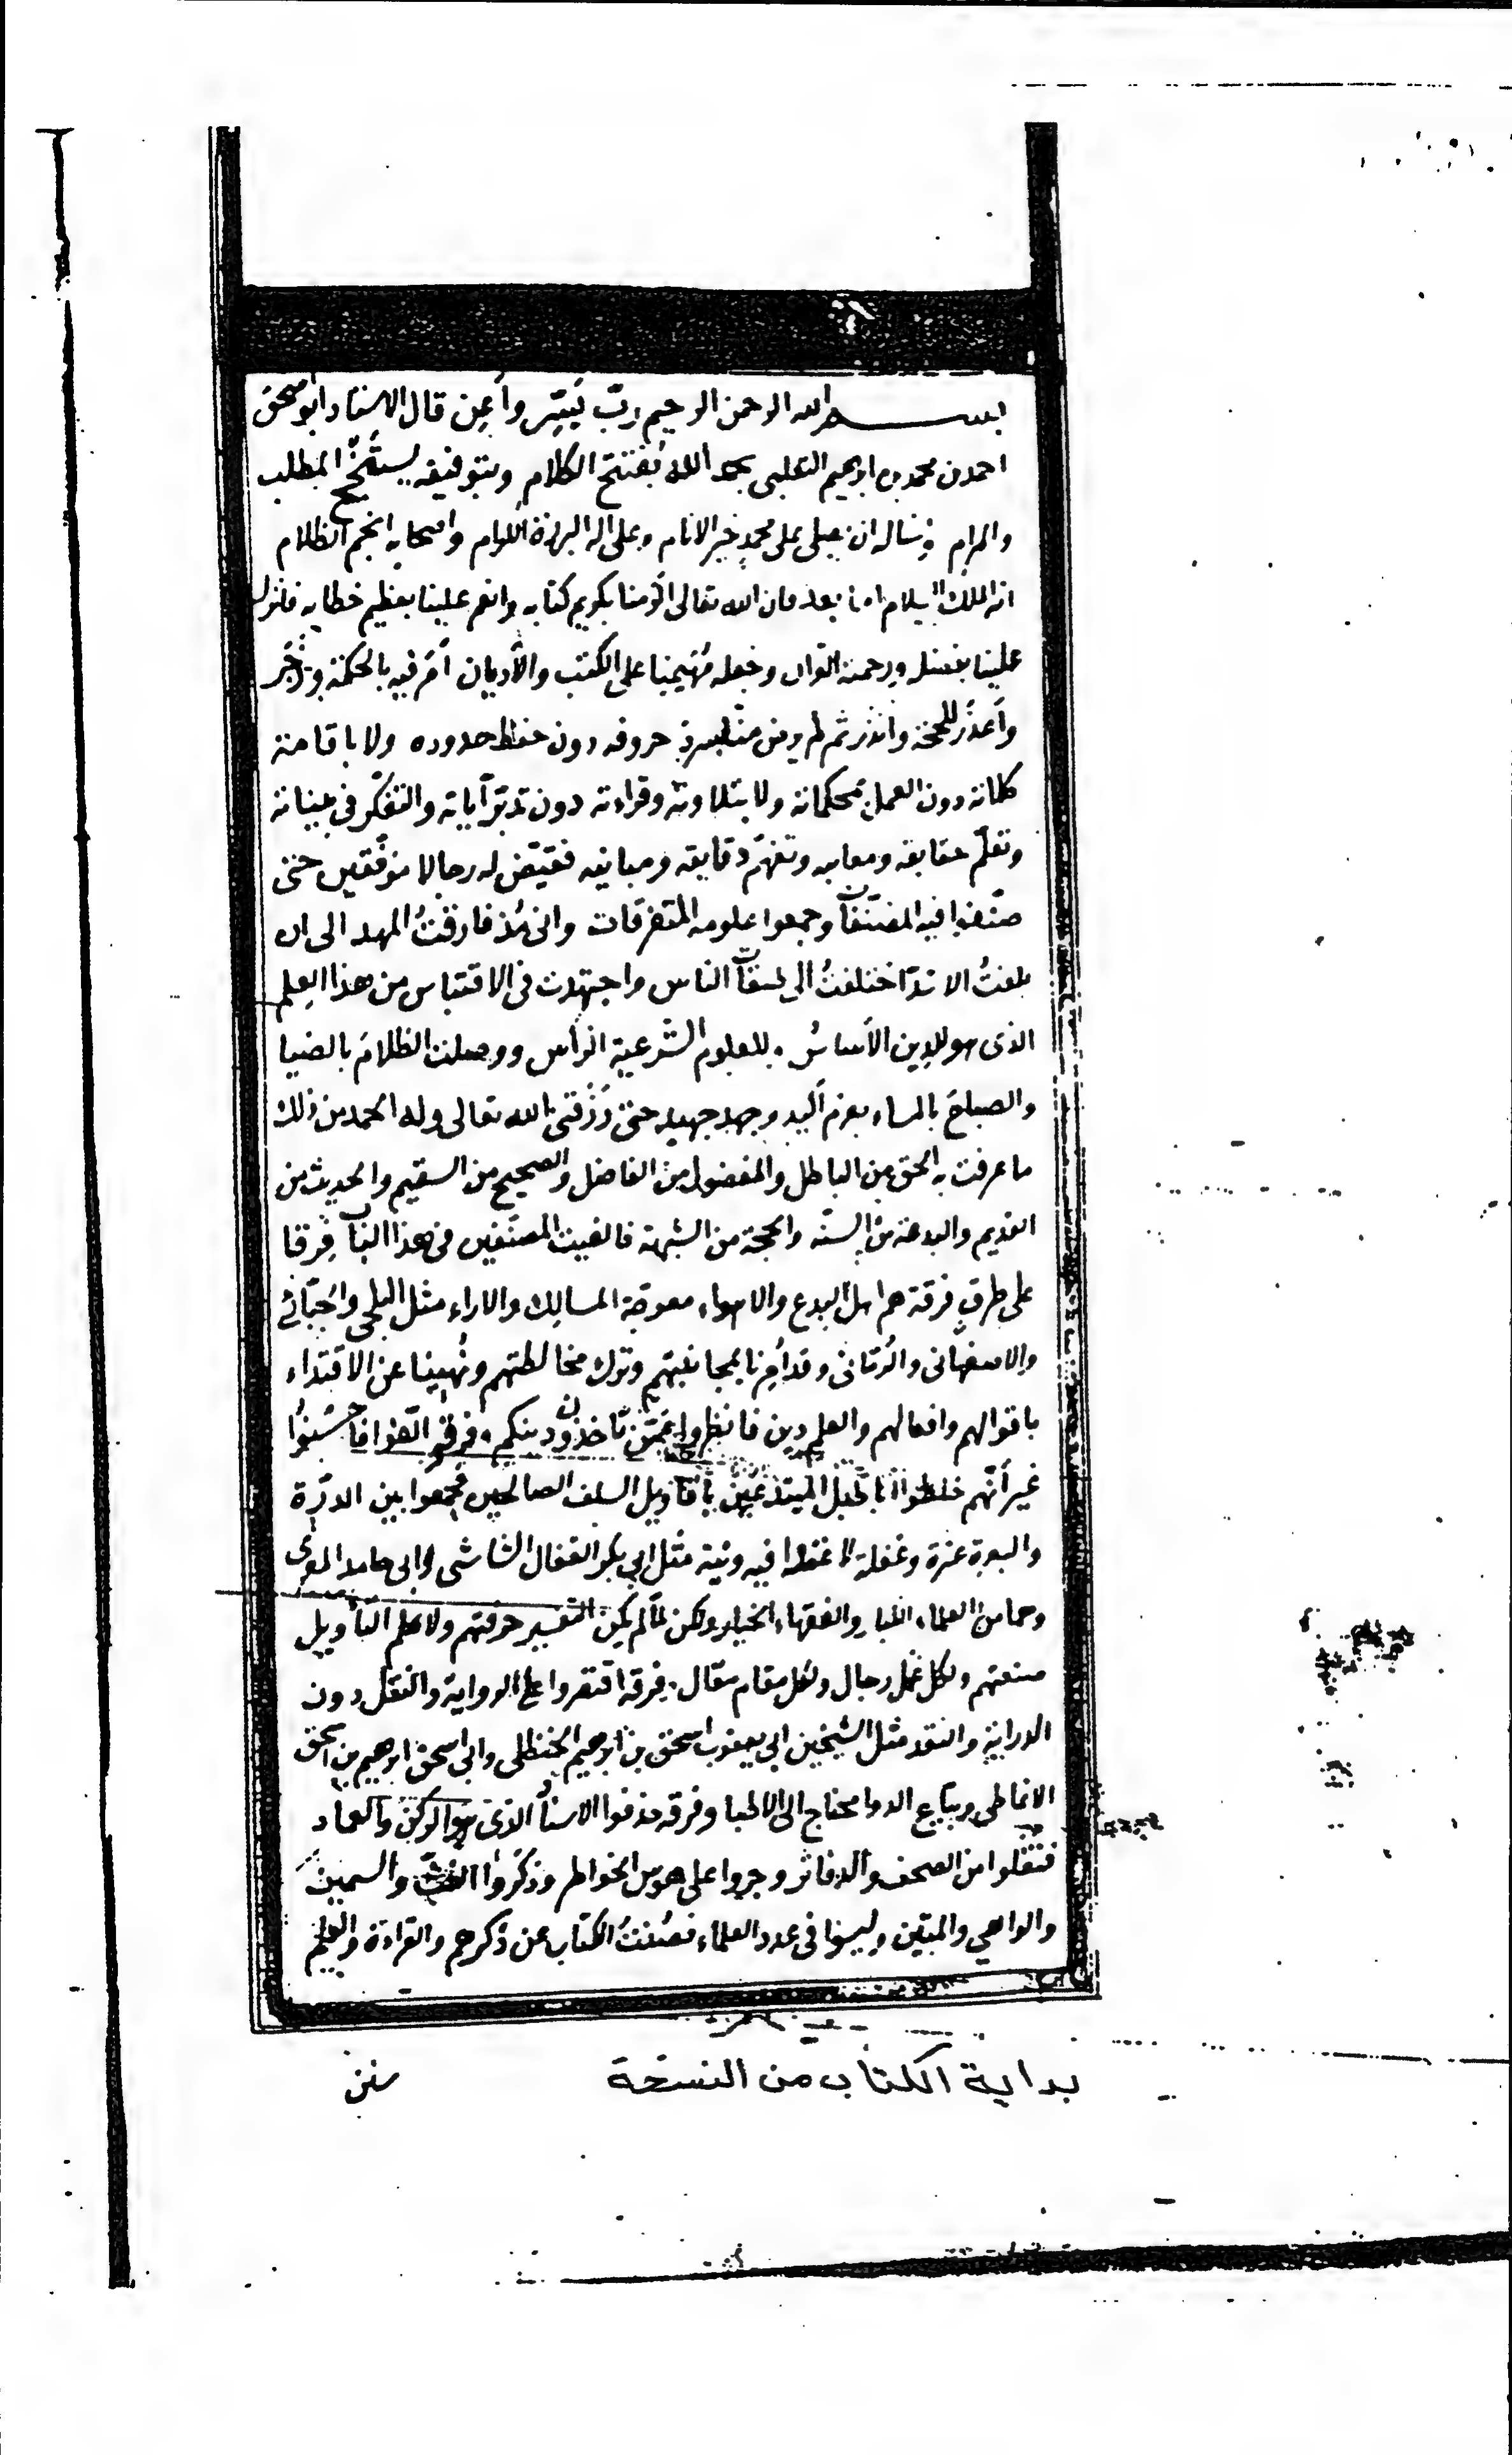 بسم الله الرحمن الرحيم رب يَسِّر وأَعِن قال الاستاد ابو اسحق
احمد بن محمد بن ابرهيم الثعلبى بحمد الله يُفتتح الكلام وبتوفيقه يستنجح المطلب
والمرام ونساله ان يصلى على محمد خير الانام وعلى اله البررة الكرام واصحابه انجم الظلام
انه الملك السلام اما بعد فان الله تعالى اكرمنا بكريم كتابه وانعم علينا بعظيم خطابه فانزل
علينا بفضله ورحمته القران وجعله مُهَيمِنا على الكتب والأديان أمَر فيه بالحكمة وزَجَر
وأَعذَر للحجة وانذر ثم لم يرض منا بسرد حروفه دون حفظ حدوده ولا باقامة
كلماته دون العمل بمحكماته ولا بتلاوته وقراءته دون تدبّر آياته والتفكّر فى بيناته
وتعلّم حقايقه ومعانيه وتفهّم دقايقه ومبانيه فقيّض له رجالا موفّقين حتى
صنّفوا فيه المصنّفات وجمعوا علومه المتفرقات وانى مُذ فارقتُ المهد الى ان
بلغتُ الاشدّ اختلفتُ الى ثقات الناس واجتهدت فى الاقتباس من هذا العلم
الذى هو للدين الأساسُ. للعلوم الشرعية الرأس ووصلت الظلامَ بالضيا
والصباحَ بالمساء بعزم أكيد وجهد جهيد حتى رَزَقنى الله تعالى وله الحمد من ذلك
ما عرفت به الحق من الباطل والمفضول من الفاضل والصحيح من السقيم والحديث من
القديم والبدعة من السنّه والحجة من الشبهة فالفيت المصنّفين فى هذا الباب فِرقا
على طرق فرقة هم اهل البدع والاهواء معوجّة المسالك والاراء مثل البلخى والجُبّائى
والاصفهانى والرُمّانى وقد أُمِرنا بمجانبتهم وترك مخالطتهم ونُهينا عن الاقتداء
باقوالهم وافعالهم والعلم دين فانظروا عَمّن تاخذون دينكم. فرقة الّفوا فاحسَنوُا
غير أنّهم خلطوا اباطيل المبتدعين بأقاويل السلف الصالحين فجمعوا بين الدرّة
والبعرة عثرة وغفلة لا عقدا فيه ونية مثل ابى بكر القفال الشاشى وابى حامد المقرى
وهما من العلماء الكبار والفقهاء الخيار ولكن لمّا لم يكن التفسير حرفتهم ولا علم التأويل
صنعتهم ولكل عمل رجال ولكل مقام مقال. فِرقه اقتصروا على الرواية والنقل دون
الدراية والنقد مثل الشيخين ابى يعقوب اسحق بن ابرهيم الحنظلى وابى اسحق ابرهيم بن اسحق
الانماطى وبيّاع الدوا محتاج الى الاطبا وفرقه حذفوا الاسنادَ الذى هو الركن والعماد
فنقلوا من الصحف والدفاتر وجروا على هوس الخواطر وذكروا الغثّ والسمين
والواهى والمتين وليسوا فى عدد العلماء فصُنتُ الكتاب عن ذكرهم والقراءة والعلم
بداية الكتاب من النسخة